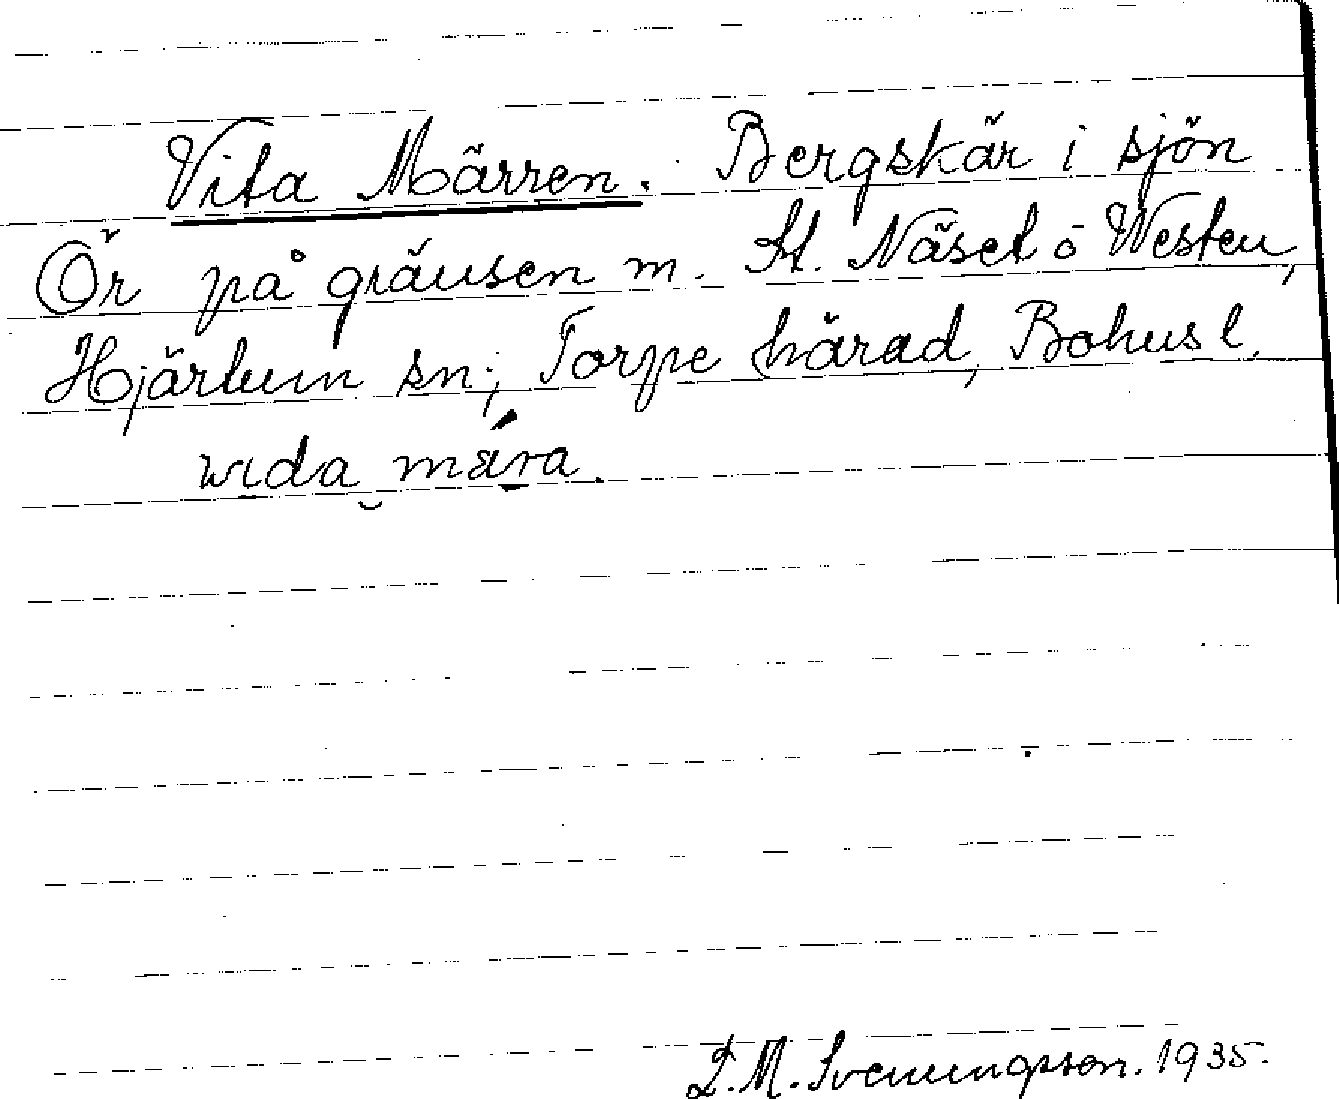 Vita Märren. Bergskär i sjön
Ör på gränsen m. St. Näset o Westen,
Hjärtum sn; Torpe härad, Bohusl.
wida mára.
L. M. Svenungsson. 1935.